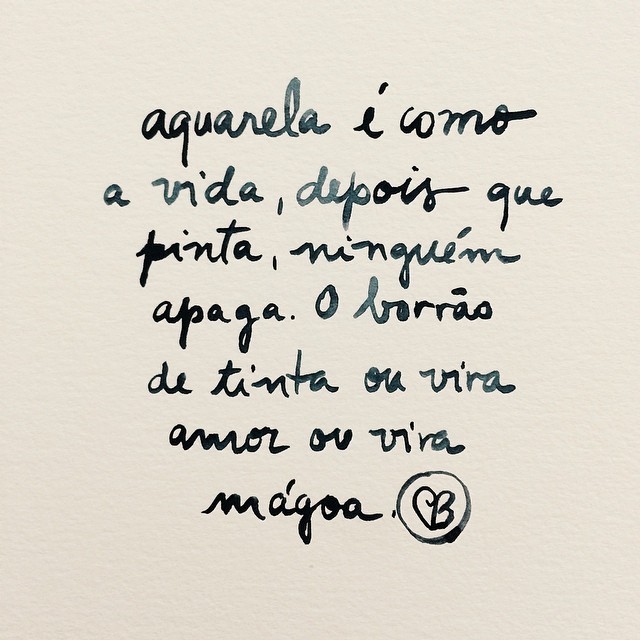 aquarela é como
a vida, depois que
pinta, ninguém
apaga. O borrão
de tinta ou vira
amor ou vira
mágoa.